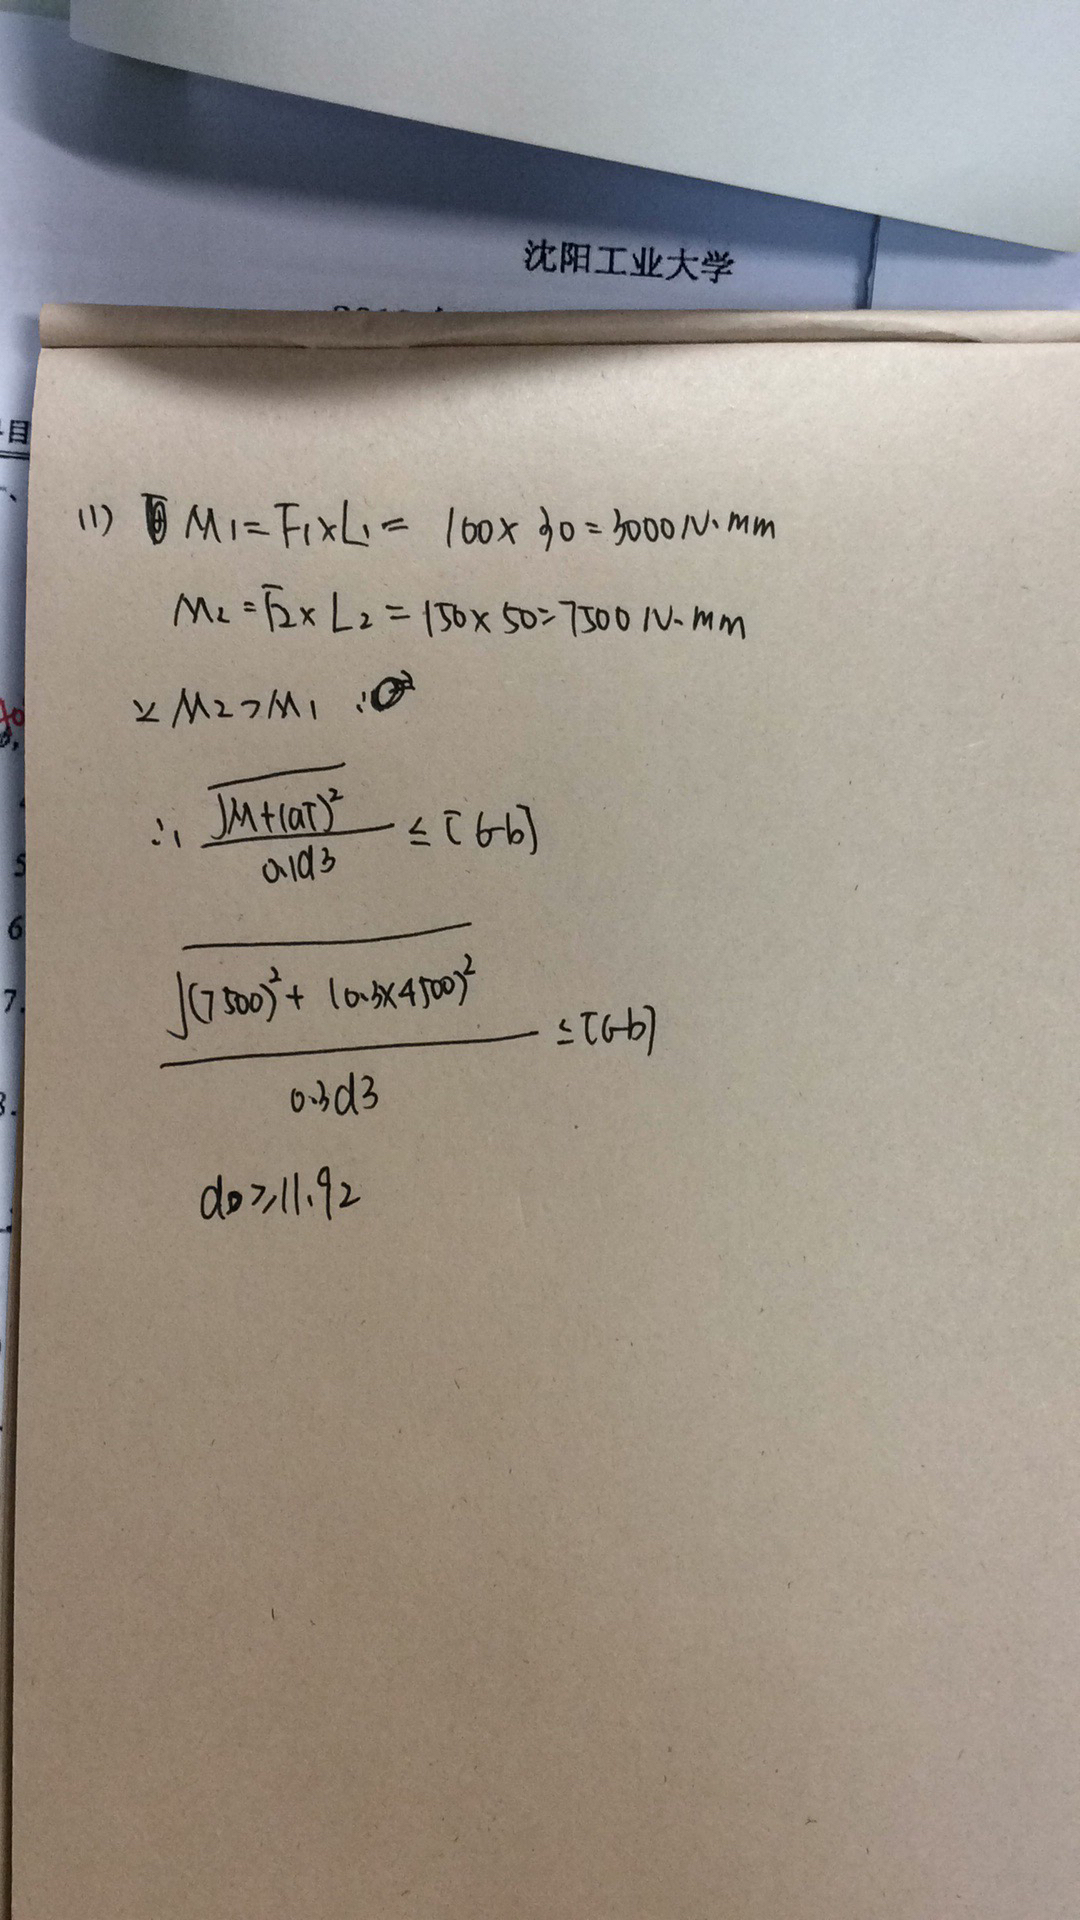 沈阳工业大学
目
(1) M1=F1×L1= 100×30=3000N·mm
M2=F2×L2=150×50=7500N·mm
又M2>M1
∴ √M+(aT)² / 0.1d3 ≤[σb]
5
6
√(7500)²+(0.3×4500)² / 0.3d3 ≤[σb]
7.
d0≥11.92